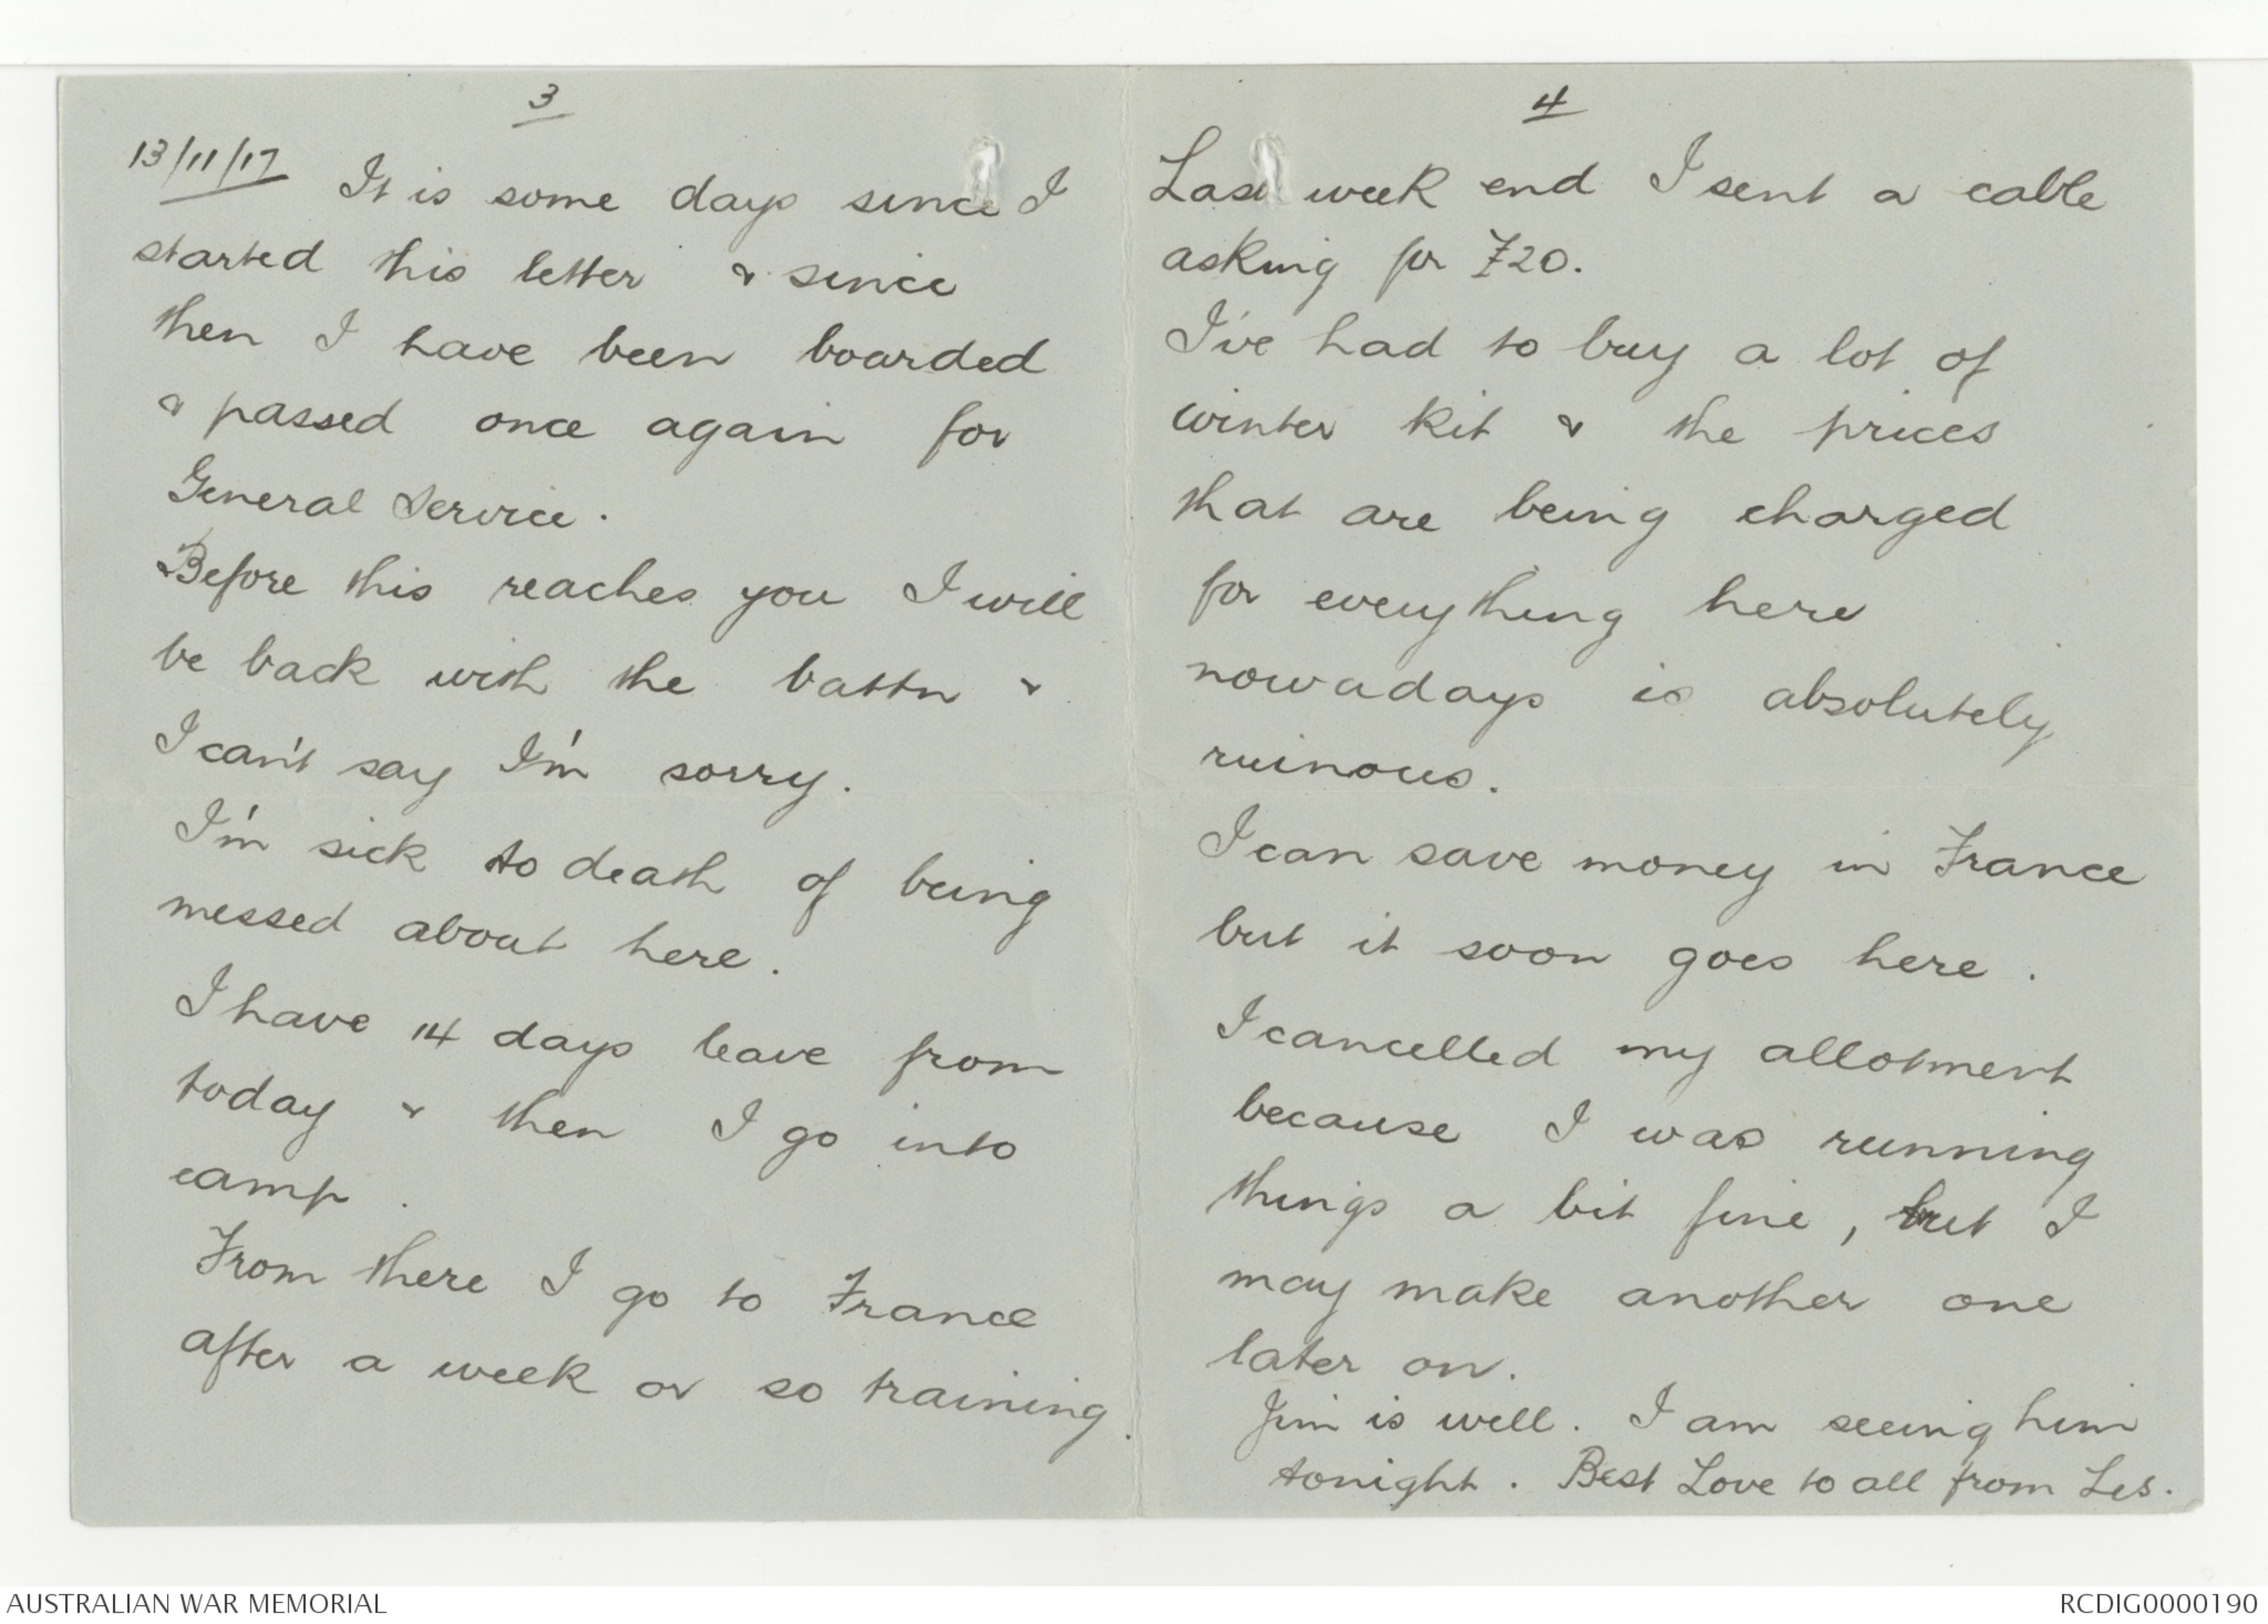 3
13/11/17 It is some days since I
started this letter & since
then I have been boarded
& passed once again for
General Service.
Before this reaches you I will
be back with the battn &
I can't say I'm sorry.
I'm sick to death of being
messed about here.
I have 14 days leave from
today & then I go into
camp.
From there I go to France
after a week or so training.
4
Last week end I sent a cable
asking for £20.
I've had to buy a lot of
winter kit & the prices
that are being charged
for everything here
nowadays is absolutely
ruinous.
I can save money in France
but it soon goes here.
I cancelled my allotment
because I was running
things a bit fine, but I
may make another one
later on.
Jim is well. I am seeing him
tonight. Best Love to all from Les.
AUSTRALIAN WAR MEMORIAL
RCDIG0000190